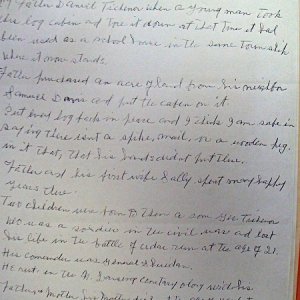 My father Daniel Tichnor when a young man took
this log cabin and tore it down at that time it had
been used as a school house in the same township
where it now stands.
Father purchased an acre of land from his neighbor
Samuel Davis and put the cabin on it.
Put every log back in place and I think I am safe in
saying there isnt a spike, nail, or a wooden peg
in it that, that his hands didnt put there.
Father and his first wife Sally spent many happy
years there.
Two children were born to them a son Geo Tichnor
who was a soldier in the civil war and lost
his life in the battle of cedar run at the age of 21.
His comander was General Sheridan.
He rest in the N. Lansing cemetary along with his
Father & Mother his Mother died